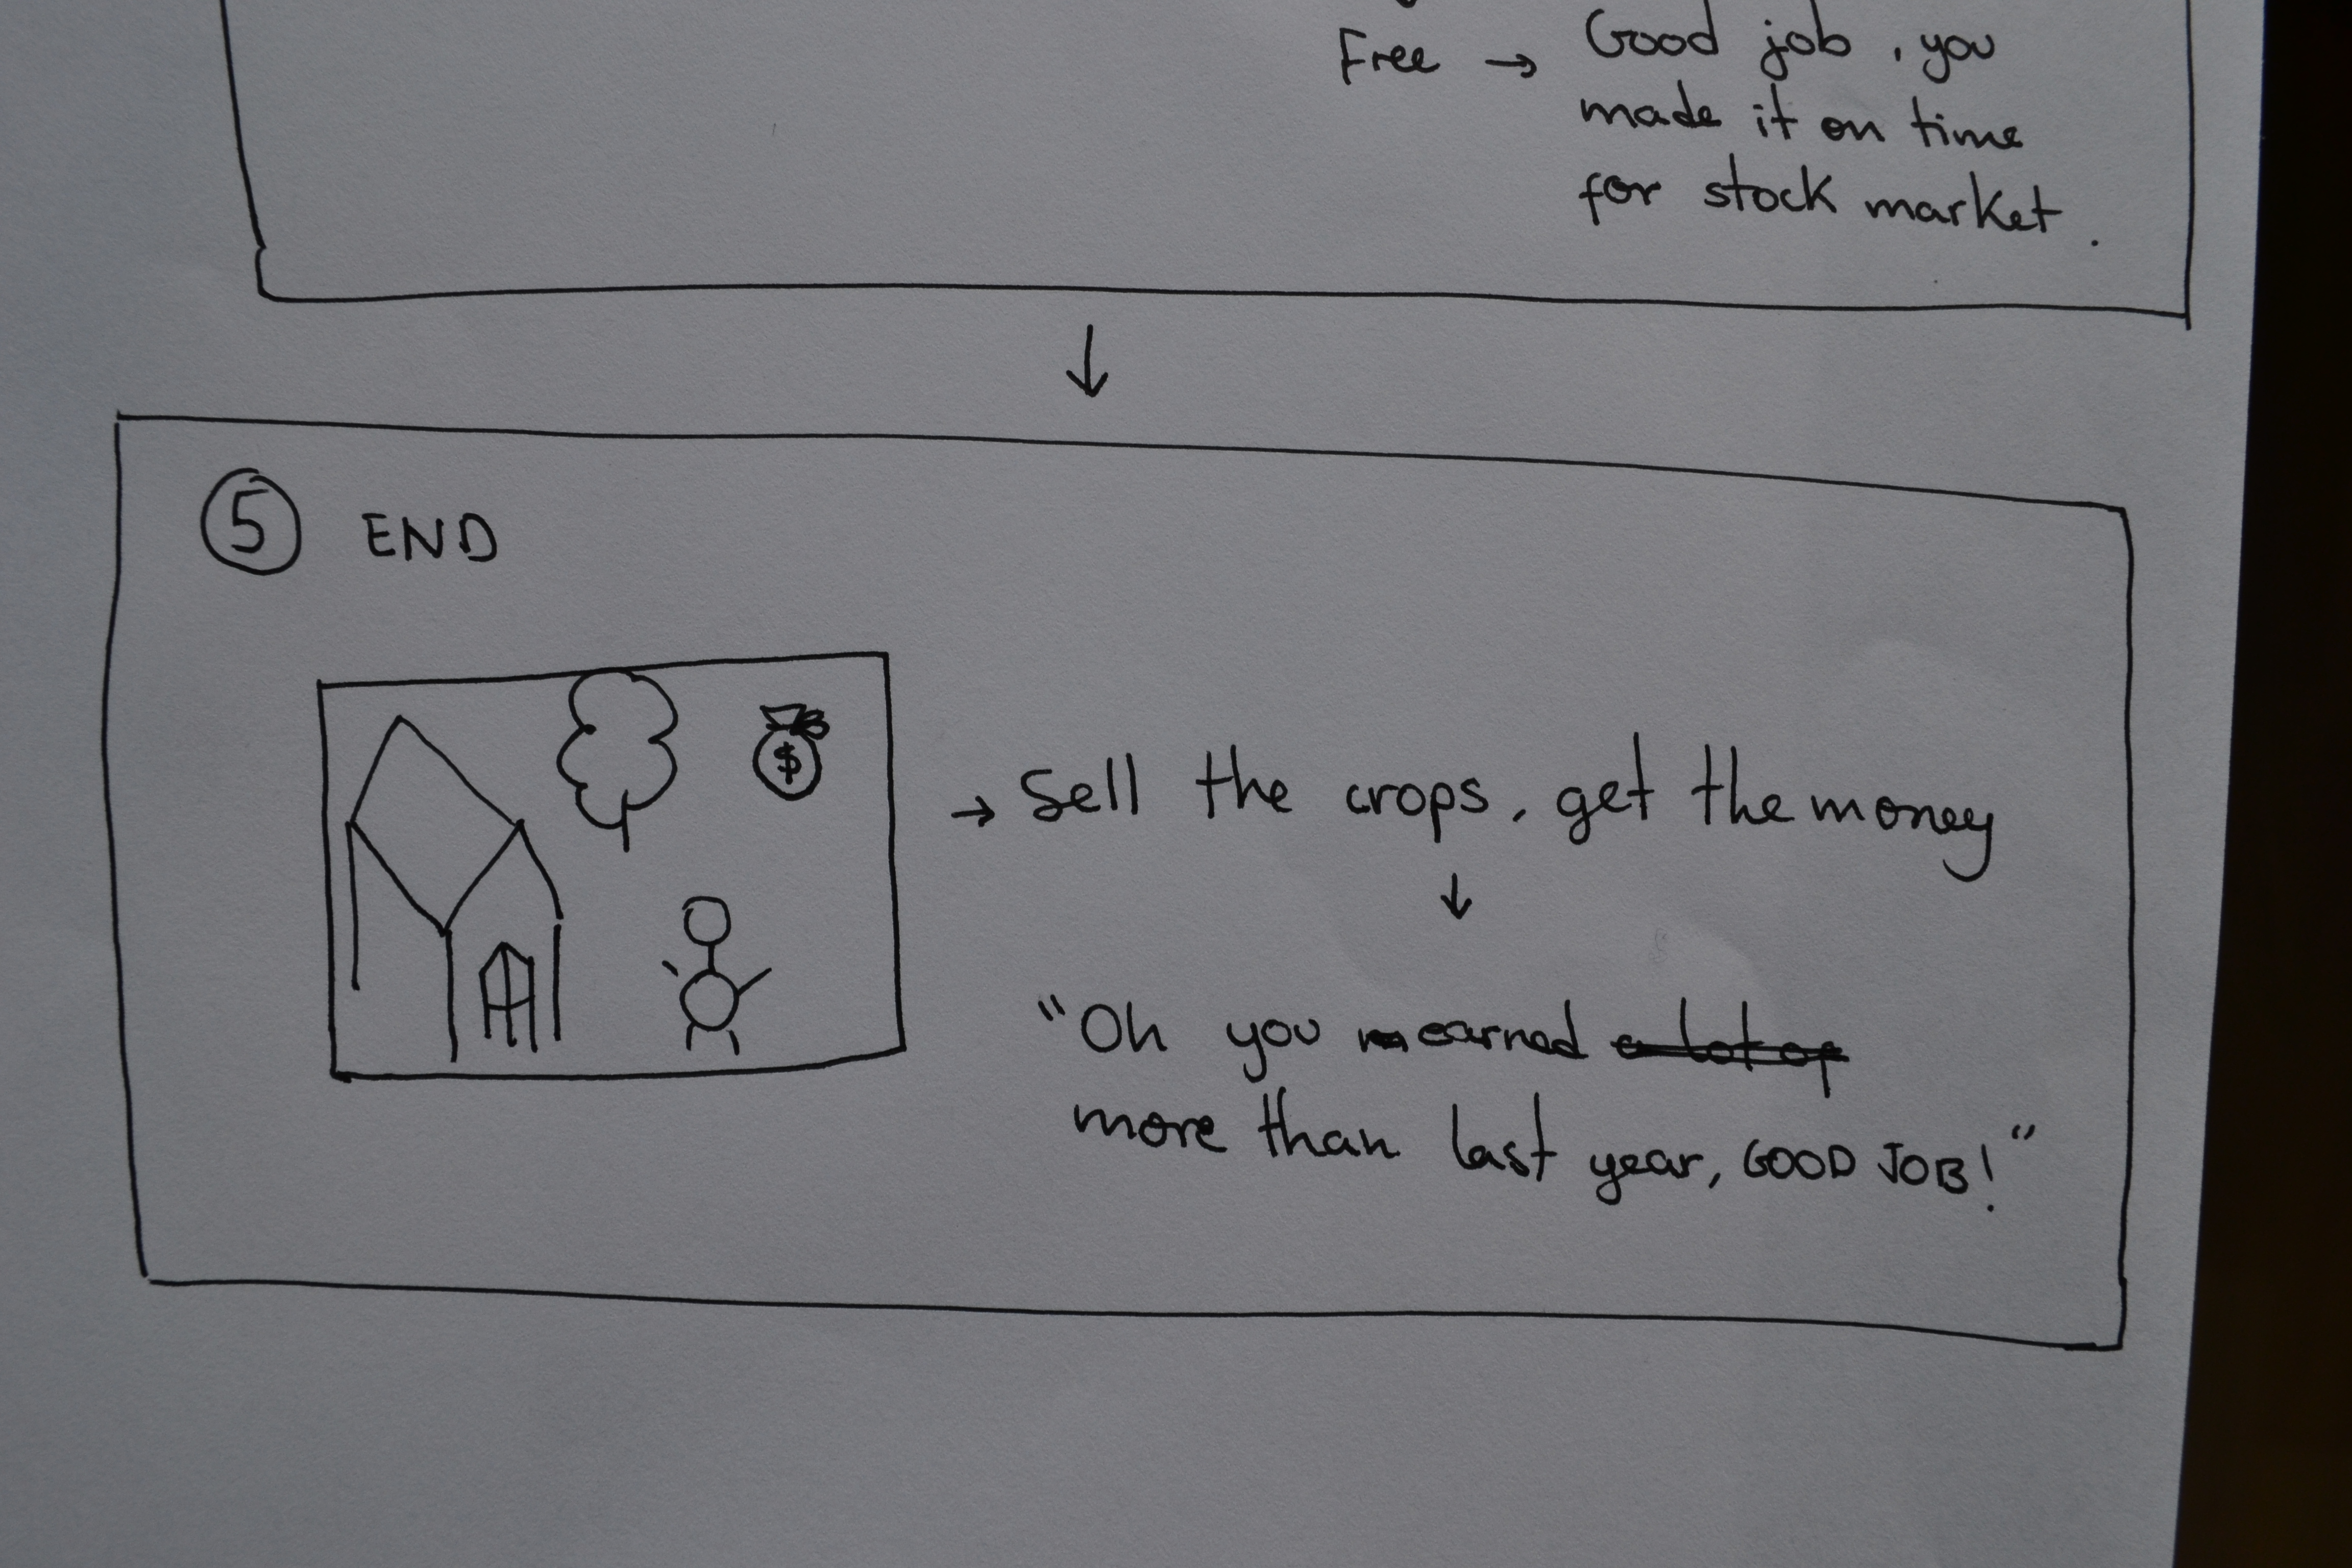 Free → Good job, you
made it on time
for stock market.
↓
⑤ END
$
→ Sell the crops, get the money
↓
"Oh you earned
more than last year, GOOD JOB!"